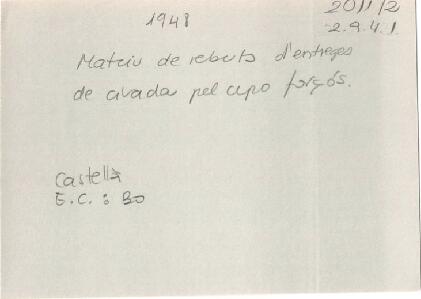 1948
2011/2
2.9.4.1
Matriu de rebuts d'entregues
de civada pel cupo forçós.
Castellà
E.C. : Bo